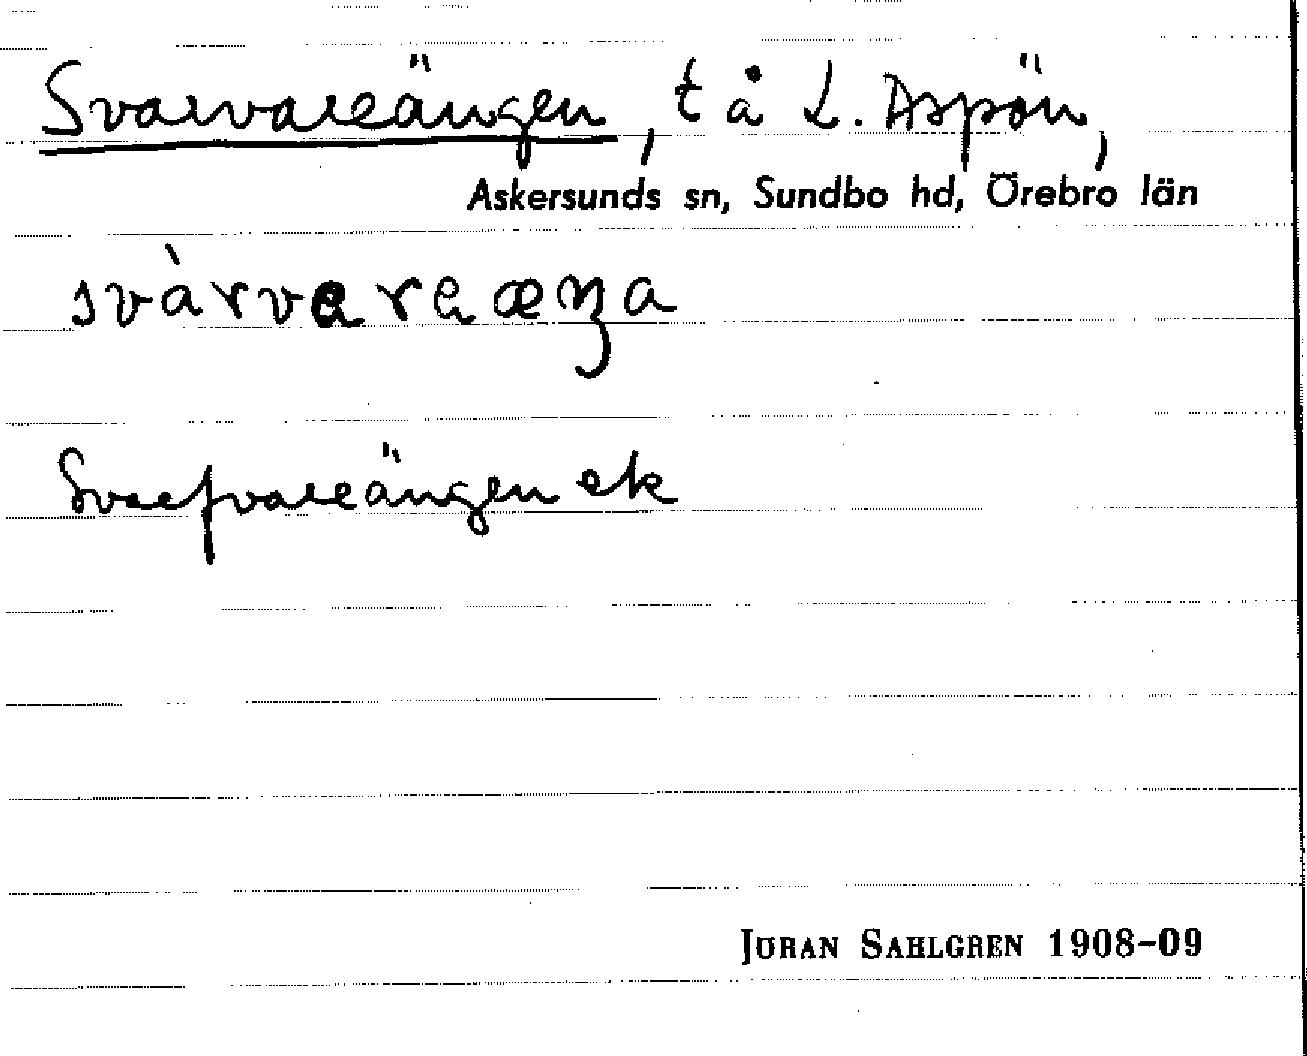 Svarvareängen, t å L. Aspön,
Askersunds sn, Sundbo hd, Örebro län
svàrvaraæŋa
Svarfvareängen ek
JÖRAN SAHLGREN 1908-09